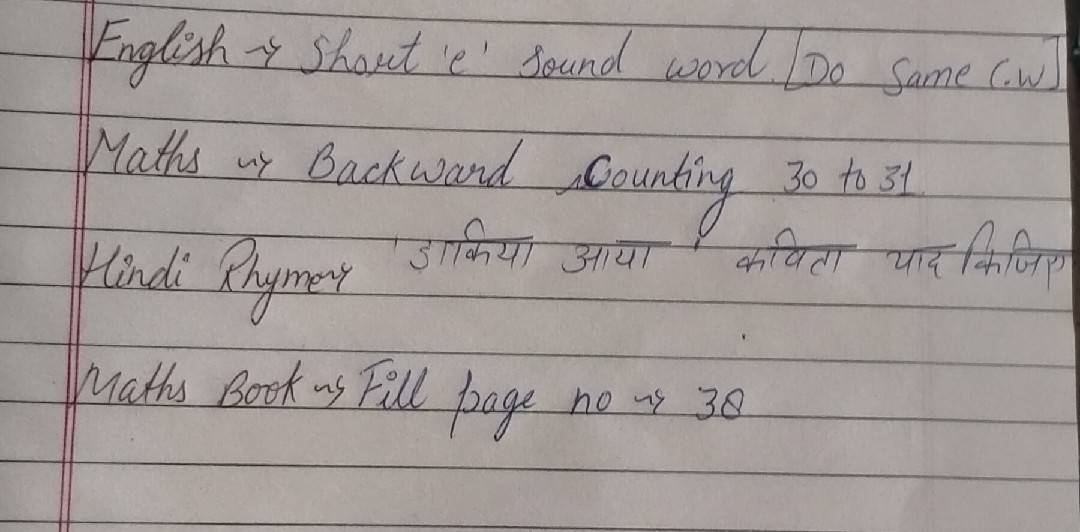 English → Short 'e' sound word. [Do Same C.W]
Maths → Backward Counting 30 to 31
Hindi Rhyme → 'डाकिया आया' कविता याद किजिए
Maths Book → Fill page no → 38